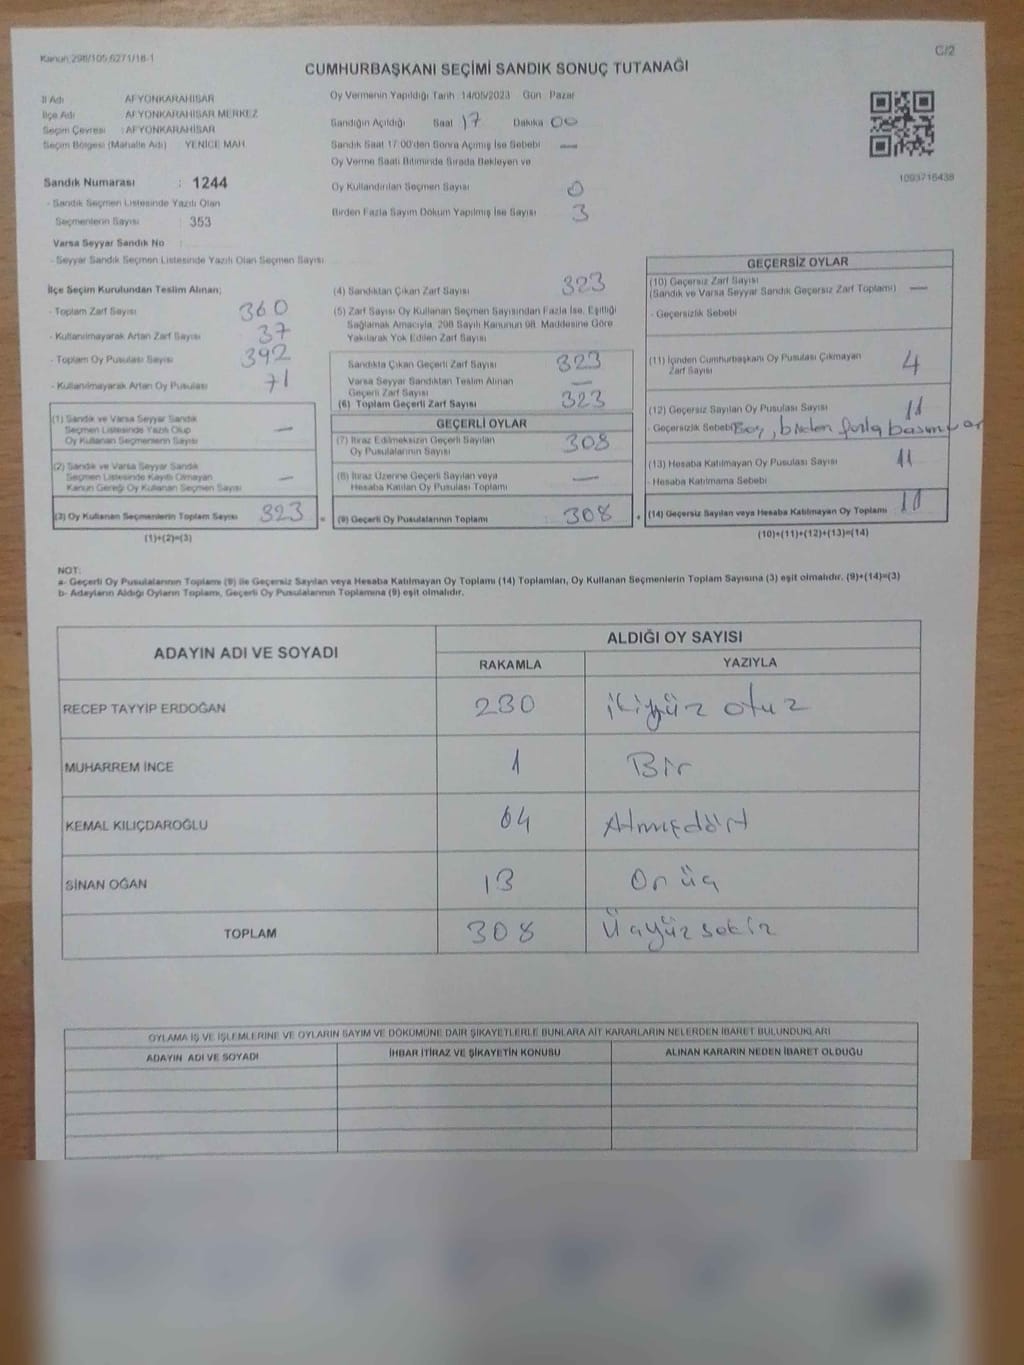 Kanun 298/105,6271/18-1
C/2
CUMHURBAŞKANI SEÇİMİ SANDIK SONUÇ TUTANAĞI
İl Adı AFYONKARAHİSAR
İlçe Adı AFYONKARAHİSAR MERKEZ
Seçim Çevresi : AFYONKARAHİSAR
Seçim Bölgesi (Mahalle Adı) YENİCE MAH
Sandık Numarası : 1244
- Sandık Seçmen Listesinde Yazılı Olan
Seçmenlerin Sayısı : 353
Varsa Seyyar Sandık No
- Seyyar Sandık Seçmen Listesinde Yazılı Olan Seçmen Sayısı
Oy Vermenin Yapıldığı Tarih 14/05/2023 Gün Pazar
Sandığın Açıldığı Saat 17 Dakika 00
Sandık Saat 17:00'den Sonra Açılmış İse Sebebi —
Oy Verme Saati Bitiminde Sırada Bekleyen ve
Oy Kullandırılan Seçmen Sayısı 0
Birden Fazla Sayım Döküm Yapılmış İse Sayısı 3
1093716438
İlçe Seçim Kurulundan Teslim Alınan;
- Toplam Zarf Sayısı 360
- Kullanılmayarak Artan Zarf Sayısı 37
- Toplam Oy Pusulası Sayısı 392
- Kullanılmayarak Artan Oy Pusulası 71
(1) Sandık ve Varsa Seyyar Sandık
Seçmen Listesinde Yazılı Olup
Oy Kullanan Seçmenlerin Sayısı —
(2) Sandık ve Varsa Seyyar Sandık
Seçmen Listesinde Kayıtlı Olmayan
Kanun Gereği Oy Kullanan Seçmen Sayısı —
(3) Oy Kullanan Seçmenlerin Toplam Sayısı 323 =
(1)+(2)=(3)
(4) Sandıktan Çıkan Zarf Sayısı 323
(5) Zarf Sayısı Oy Kullanan Seçmen Sayısından Fazla İse, Eşitliği
Sağlamak Amacıyla, 298 Sayılı Kanunun 98. Maddesine Göre
Yakılarak Yok Edilen Zarf Sayısı
Sandıkta Çıkan Geçerli Zarf Sayısı 323
Varsa Seyyar Sandıktan Teslim Alınan
Geçerli Zarf Sayısı —
(6) Toplam Geçerli Zarf Sayısı 323
GEÇERLİ OYLAR
(7) İtiraz Edilmeksizin Geçerli Sayılan
Oy Pusulalarının Sayısı 308
(8) İtiraz Üzerine Geçerli Sayılan veya
Hesaba Katılan Oy Pusulası Toplamı —
(9) Geçerli Oy Pusulalarının Toplamı : 308 +
GEÇERSİZ OYLAR
(10) Geçersiz Zarf Sayısı
(Sandık ve Varsa Seyyar Sandık Geçersiz Zarf Toplamı) —
- Geçersizlik Sebebi
(11) İçinden Cumhurbaşkanı Oy Pusulası Çıkmayan
Zarf Sayısı 4
(12) Geçersiz Sayılan Oy Pusulası Sayısı 11
- Geçersizlik Sebebi Boş, birden fazla
(13) Hesaba Katılmayan Oy Pusulası Sayısı 11
- Hesaba Katılmama Sebebi
(14) Geçersiz Sayılan veya Hesaba Katılmayan Oy Toplamı 11
(10)+(11)+(12)+(13)=(14)
NOT:
a- Geçerli Oy Pusulalarının Toplamı (9) ile Geçersiz Sayılan veya Hesaba Katılmayan Oy Toplamı (14) Toplamları, Oy Kullanan Seçmenlerin Toplam Sayısına (3) eşit olmalıdır. (9)+(14)=(3)
b- Adayların Aldığı Oyların Toplamı, Geçerli Oy Pusulalarının Toplamına (9) eşit olmalıdır.
ADAYIN ADI VE SOYADI
ALDIĞI OY SAYISI
RAKAMLA YAZIYLA
RECEP TAYYİP ERDOĞAN 230 ikiyüz otuz
MUHARREM İNCE 1 Bir
KEMAL KILIÇDAROĞLU 64 Atmışdört
SİNAN OĞAN 13 On üç
TOPLAM 308 Üçyüz sekiz
OYLAMA İŞ VE İŞLEMLERİNE VE OYLARIN SAYIM VE DÖKÜMÜNE DAİR ŞİKAYETLERLE BUNLARA AİT KARARLARIN NELERDEN İBARET BULUNDUKLARI
ADAYIN ADI VE SOYADI İHBAR İTİRAZ VE ŞİKAYETİN KONUSU ALINAN KARARIN NEDEN İBARET OLDUĞU